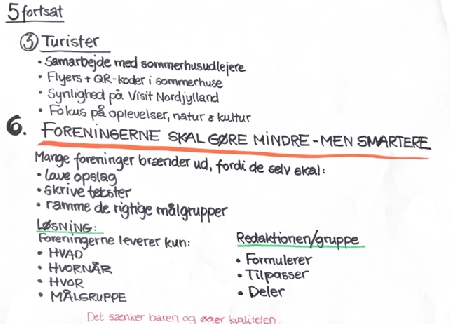 5 fortsat
③ Turister
• Samarbejde med sommerhusudlejere
• Flyers + QR-koder i sommerhuse
• Synlighed på Visit Nordjylland
• Fokus på oplevelser, natur & kultur
6. FORENINGERNE SKAL GØRE MINDRE - MEN SMARTERE
Mange foreninger brænder ud, fordi de selv skal:
• lave opslag
• skrive tekster
• ramme de rigtige målgrupper
Løsning:
Foreningerne leverer kun:
• HVAD
• HVORNÅR
• HVOR
• MÅLGRUPPE
Redaktionen/gruppe
• Formulerer
• Tilpasser
• Deler
Det sænker baren og øger kvaliteten